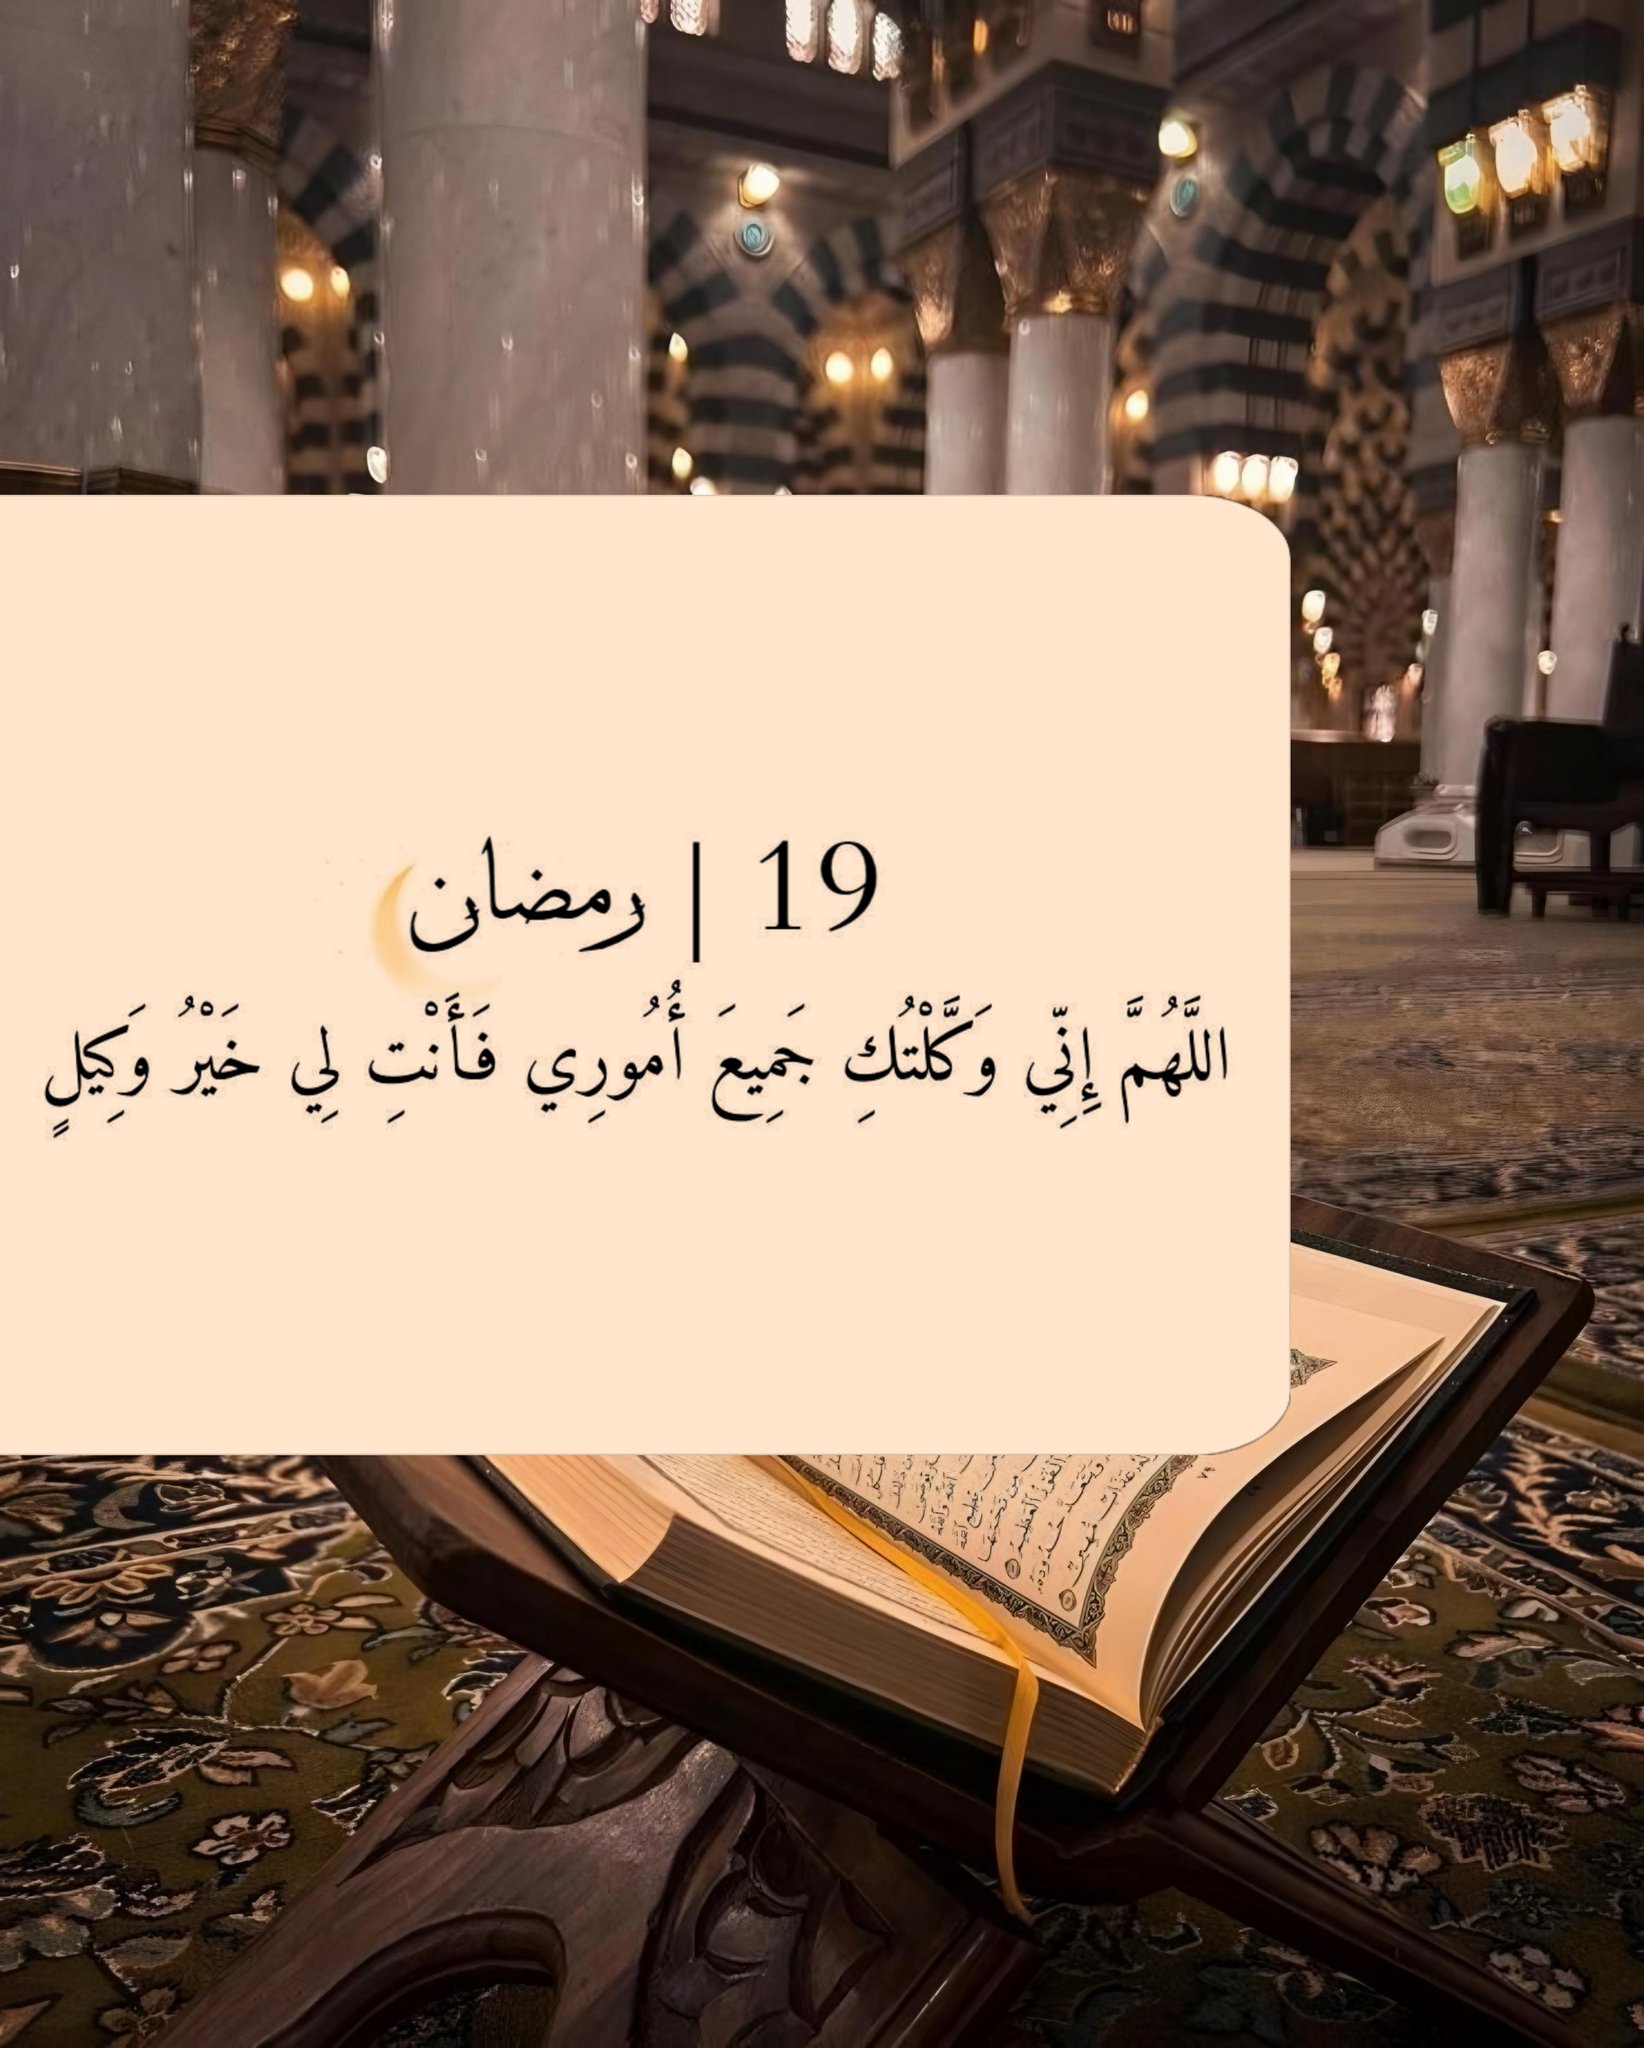 19 | رمضان
اللَّهُمَّ إِنِّي وَكَّلْتُكِ جَمِيعَ أُمُورِي فَأَنْتِ لِي خَيْرُ وَكِيلٍ